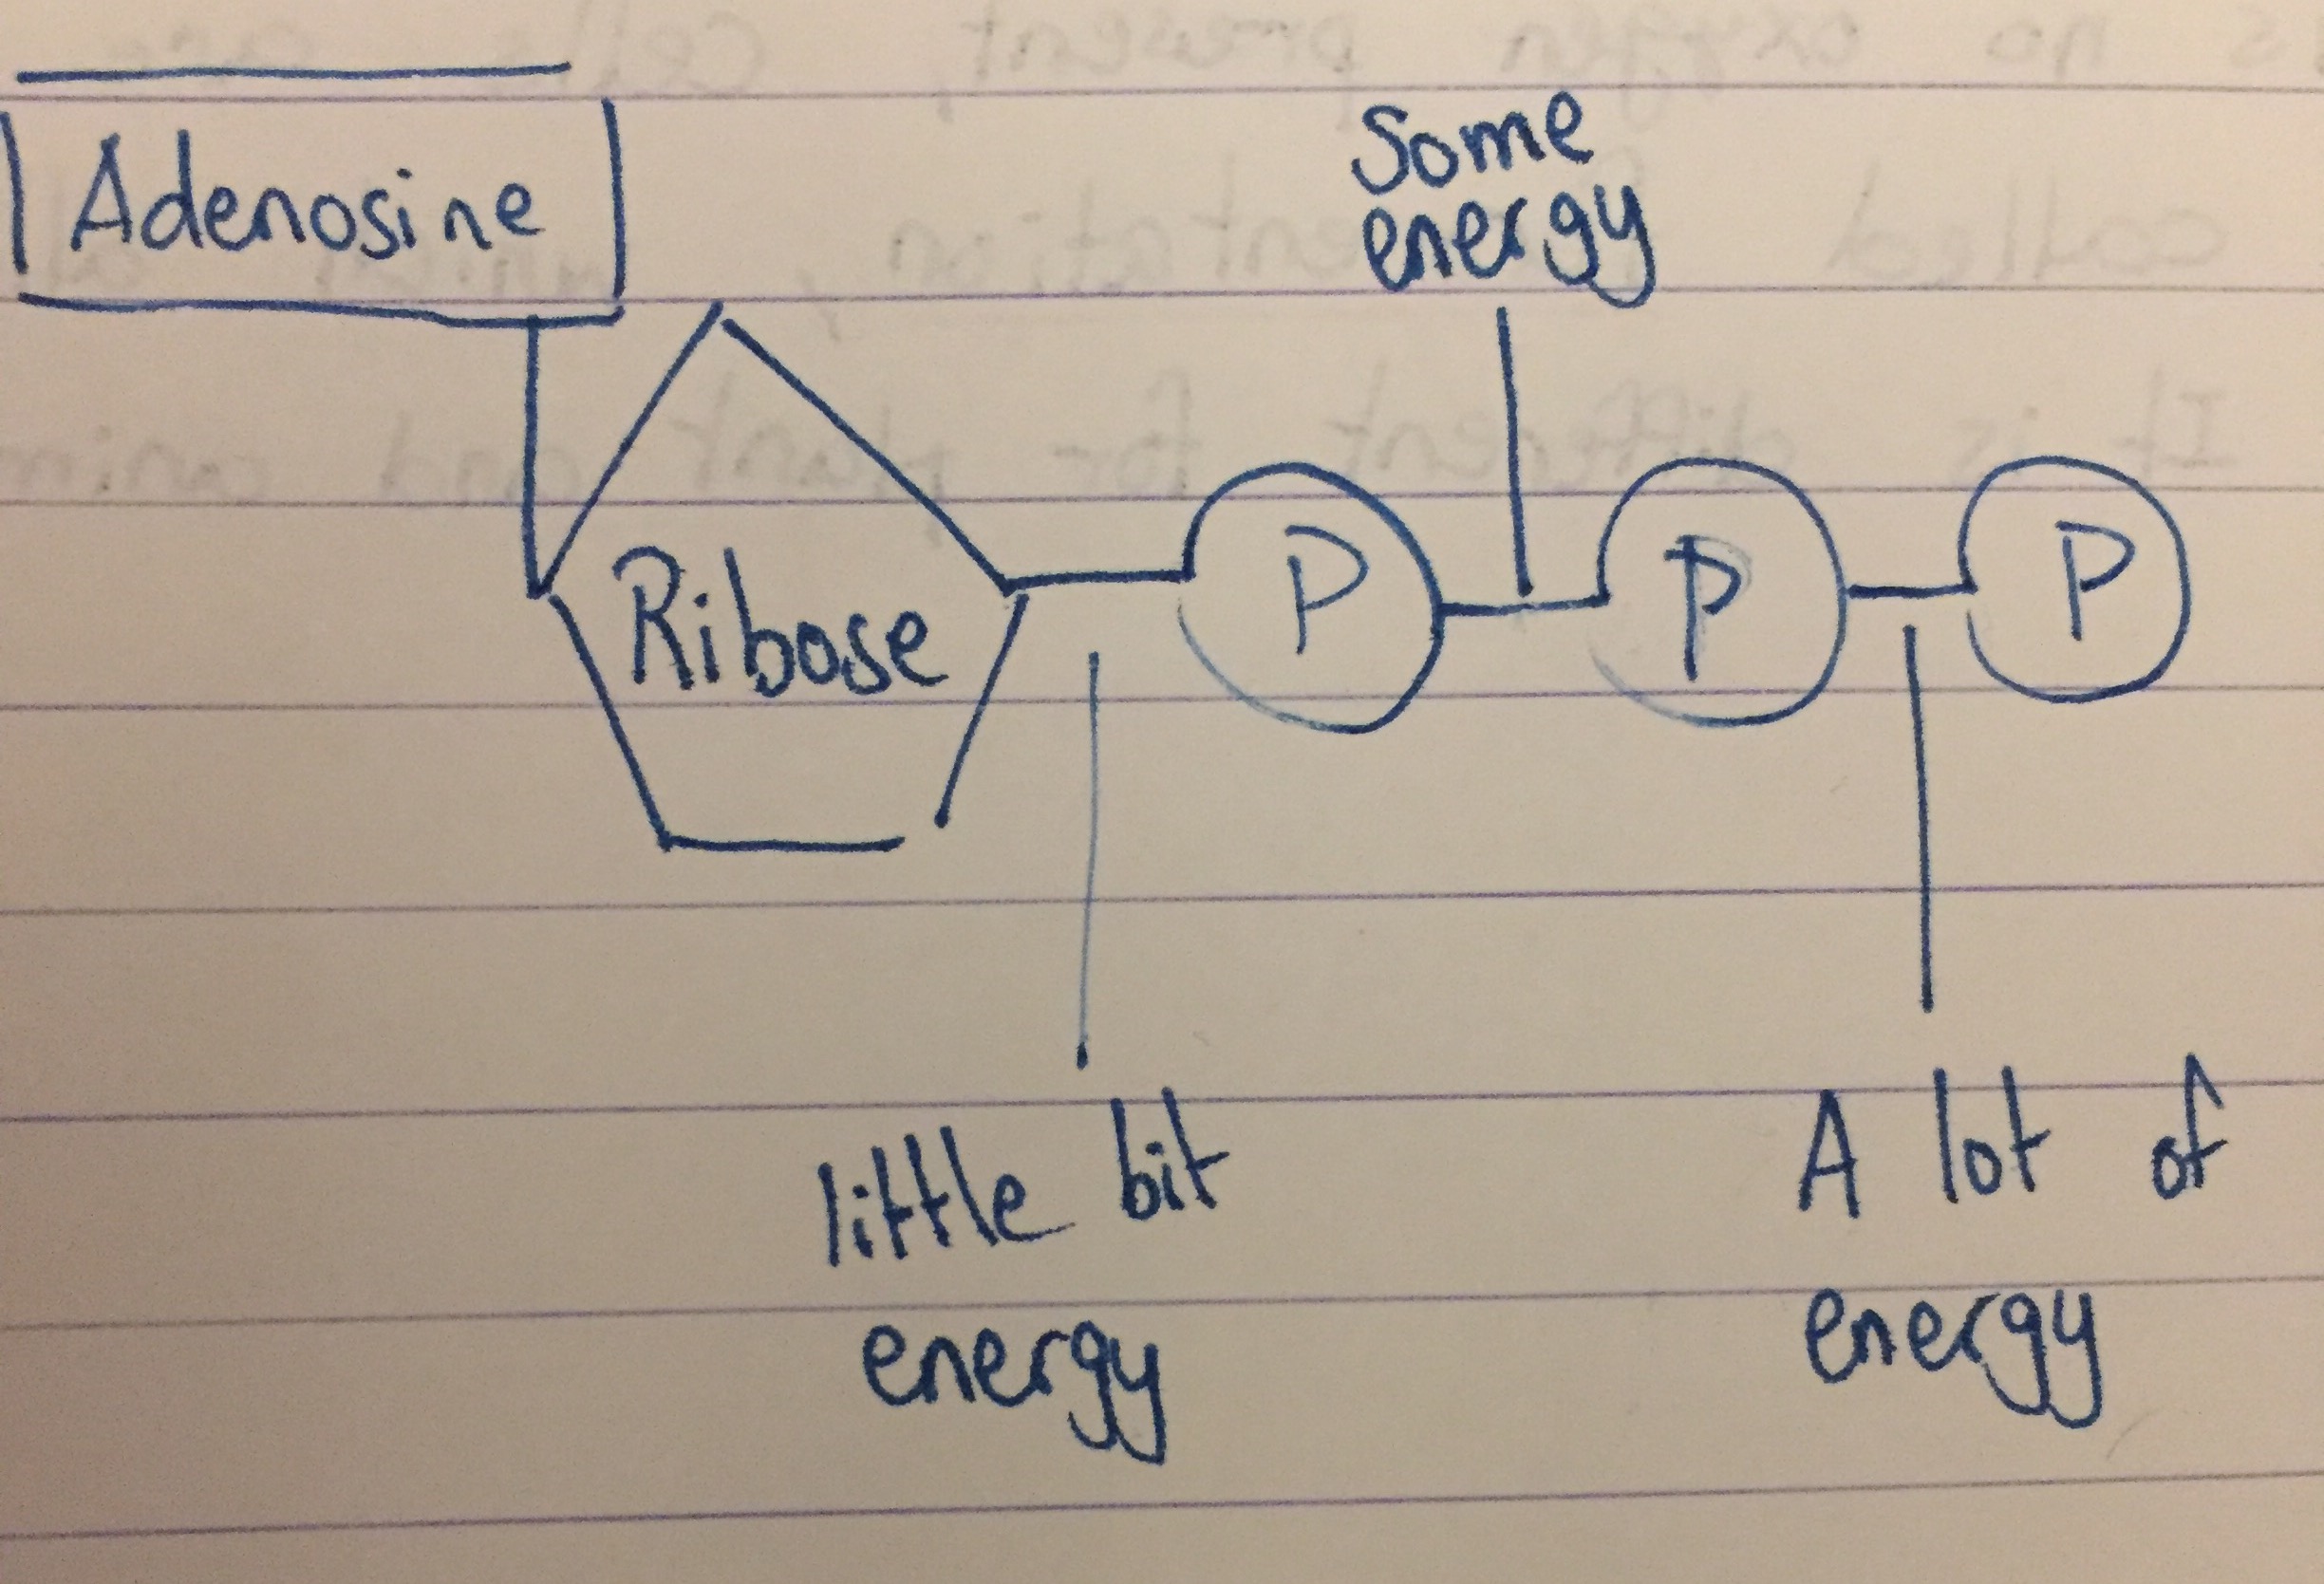 Adenosine
Some
energy
Ribose
P
P
P
little bit
energy
A lot of
energy